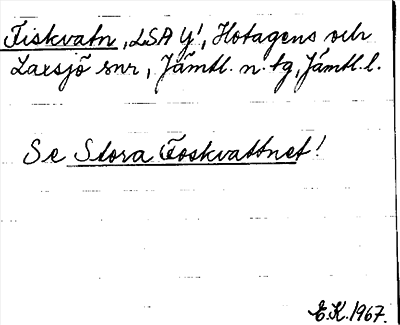 Fiskvatn, LSA Y!, Hotagens och
Laxsjö snr, Jämtl. n. tg, Jämtl. l.
Se Stora Foskvattnet!
E.K. 1967.